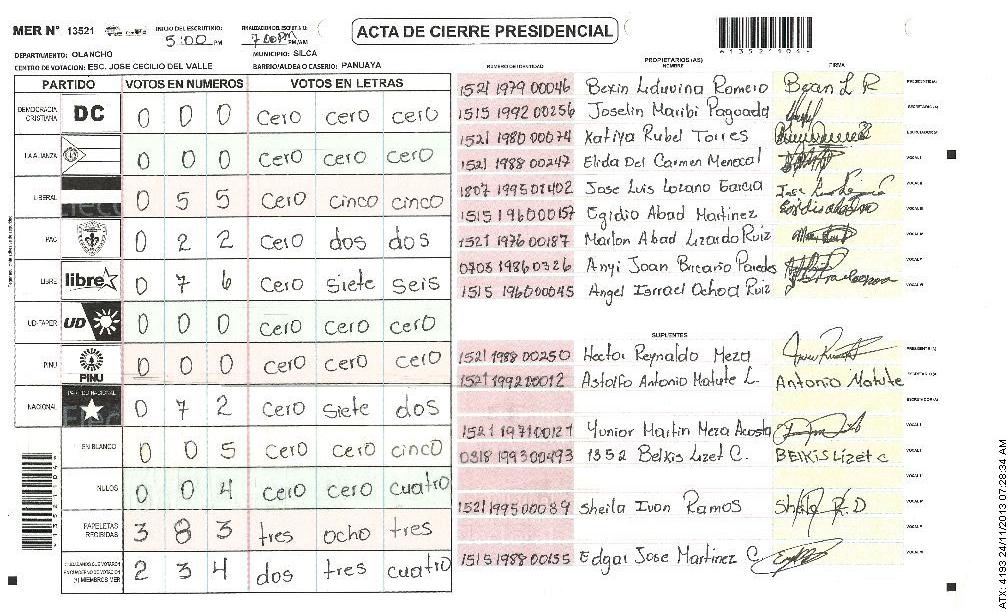 MER N° 13521
INICIO DEL ESCRUTINIO: 5:00 PM
7:00 PM PM/AM
ACTA DE CIERRE PRESIDENCIAL
DEPARTAMENTO: OLANCHO
MUNICIPIO: SILCA
CENTRO DE VOTACION: ESC. JOSE CECILIO DEL VALLE
BARRIO/ALDEA O CASERIO: PANUAYA
PARTIDO VOTOS EN NUMEROS VOTOS EN LETRAS
DEMOCRACIA CRISTIANA DC 0 0 0 cero cero cero
LA ALIANZA 0 0 0 cero cero cero
LIBERAL 0 5 5 cero cinco cinco
PAC 0 2 2 cero dos dos
LIBRE libre 0 7 6 cero siete seis
UD-FAPER UD 0 0 0 cero cero cero
PINU PINU 0 0 0 cero cero cero
NACIONAL 0 7 2 cero siete dos
EN BLANCO 0 0 5 cero cero cinco
NULOS 0 0 4 cero cero cuatro
PAPELETAS RECIBIDAS 3 8 3 tres ocho tres
MIEMBROS MER 2 3 4 dos tres cuatro
PROPIETARIOS (AS)
NUMERO DE IDENTIDAD NOMBRE FIRMA
1521 1979 00046 Bexin Liduvina Romero
1515 1992 00256 Joselin Maribi Pagoada
1521 1980 00074 Katiya Rubel Torres
1521 1988 00247 Elida Del Carmen Menocal
1807 1995 01402 Jose Luis Lozano Garcia
1515 1960 00157 Egidio Abad Martinez
1521 1976 00187 Marlon Abad Lizardo Ruiz
0703 1986 0326 Anyi Joan Bricario Paredes
1515 1960 00045 Angel Isrrael Ochoa Ruiz
SUPLENTES
1521 1988 00250 Hector Reynaldo Meza
1521 1992 00012 Astolfo Antonio Matute L. Antonio Matute
1521 1971 00121 Yunior Martin Meza Acosta
0318 1993 00493 1352 Belkis Lizet C. BELKIS Lizet C
1521 1995 00089 Sheila Ivon Ramos
1515 1988 00155 Edgar Jose Martinez C
ATX: 4193 24/11/2013 07:28:34 AM